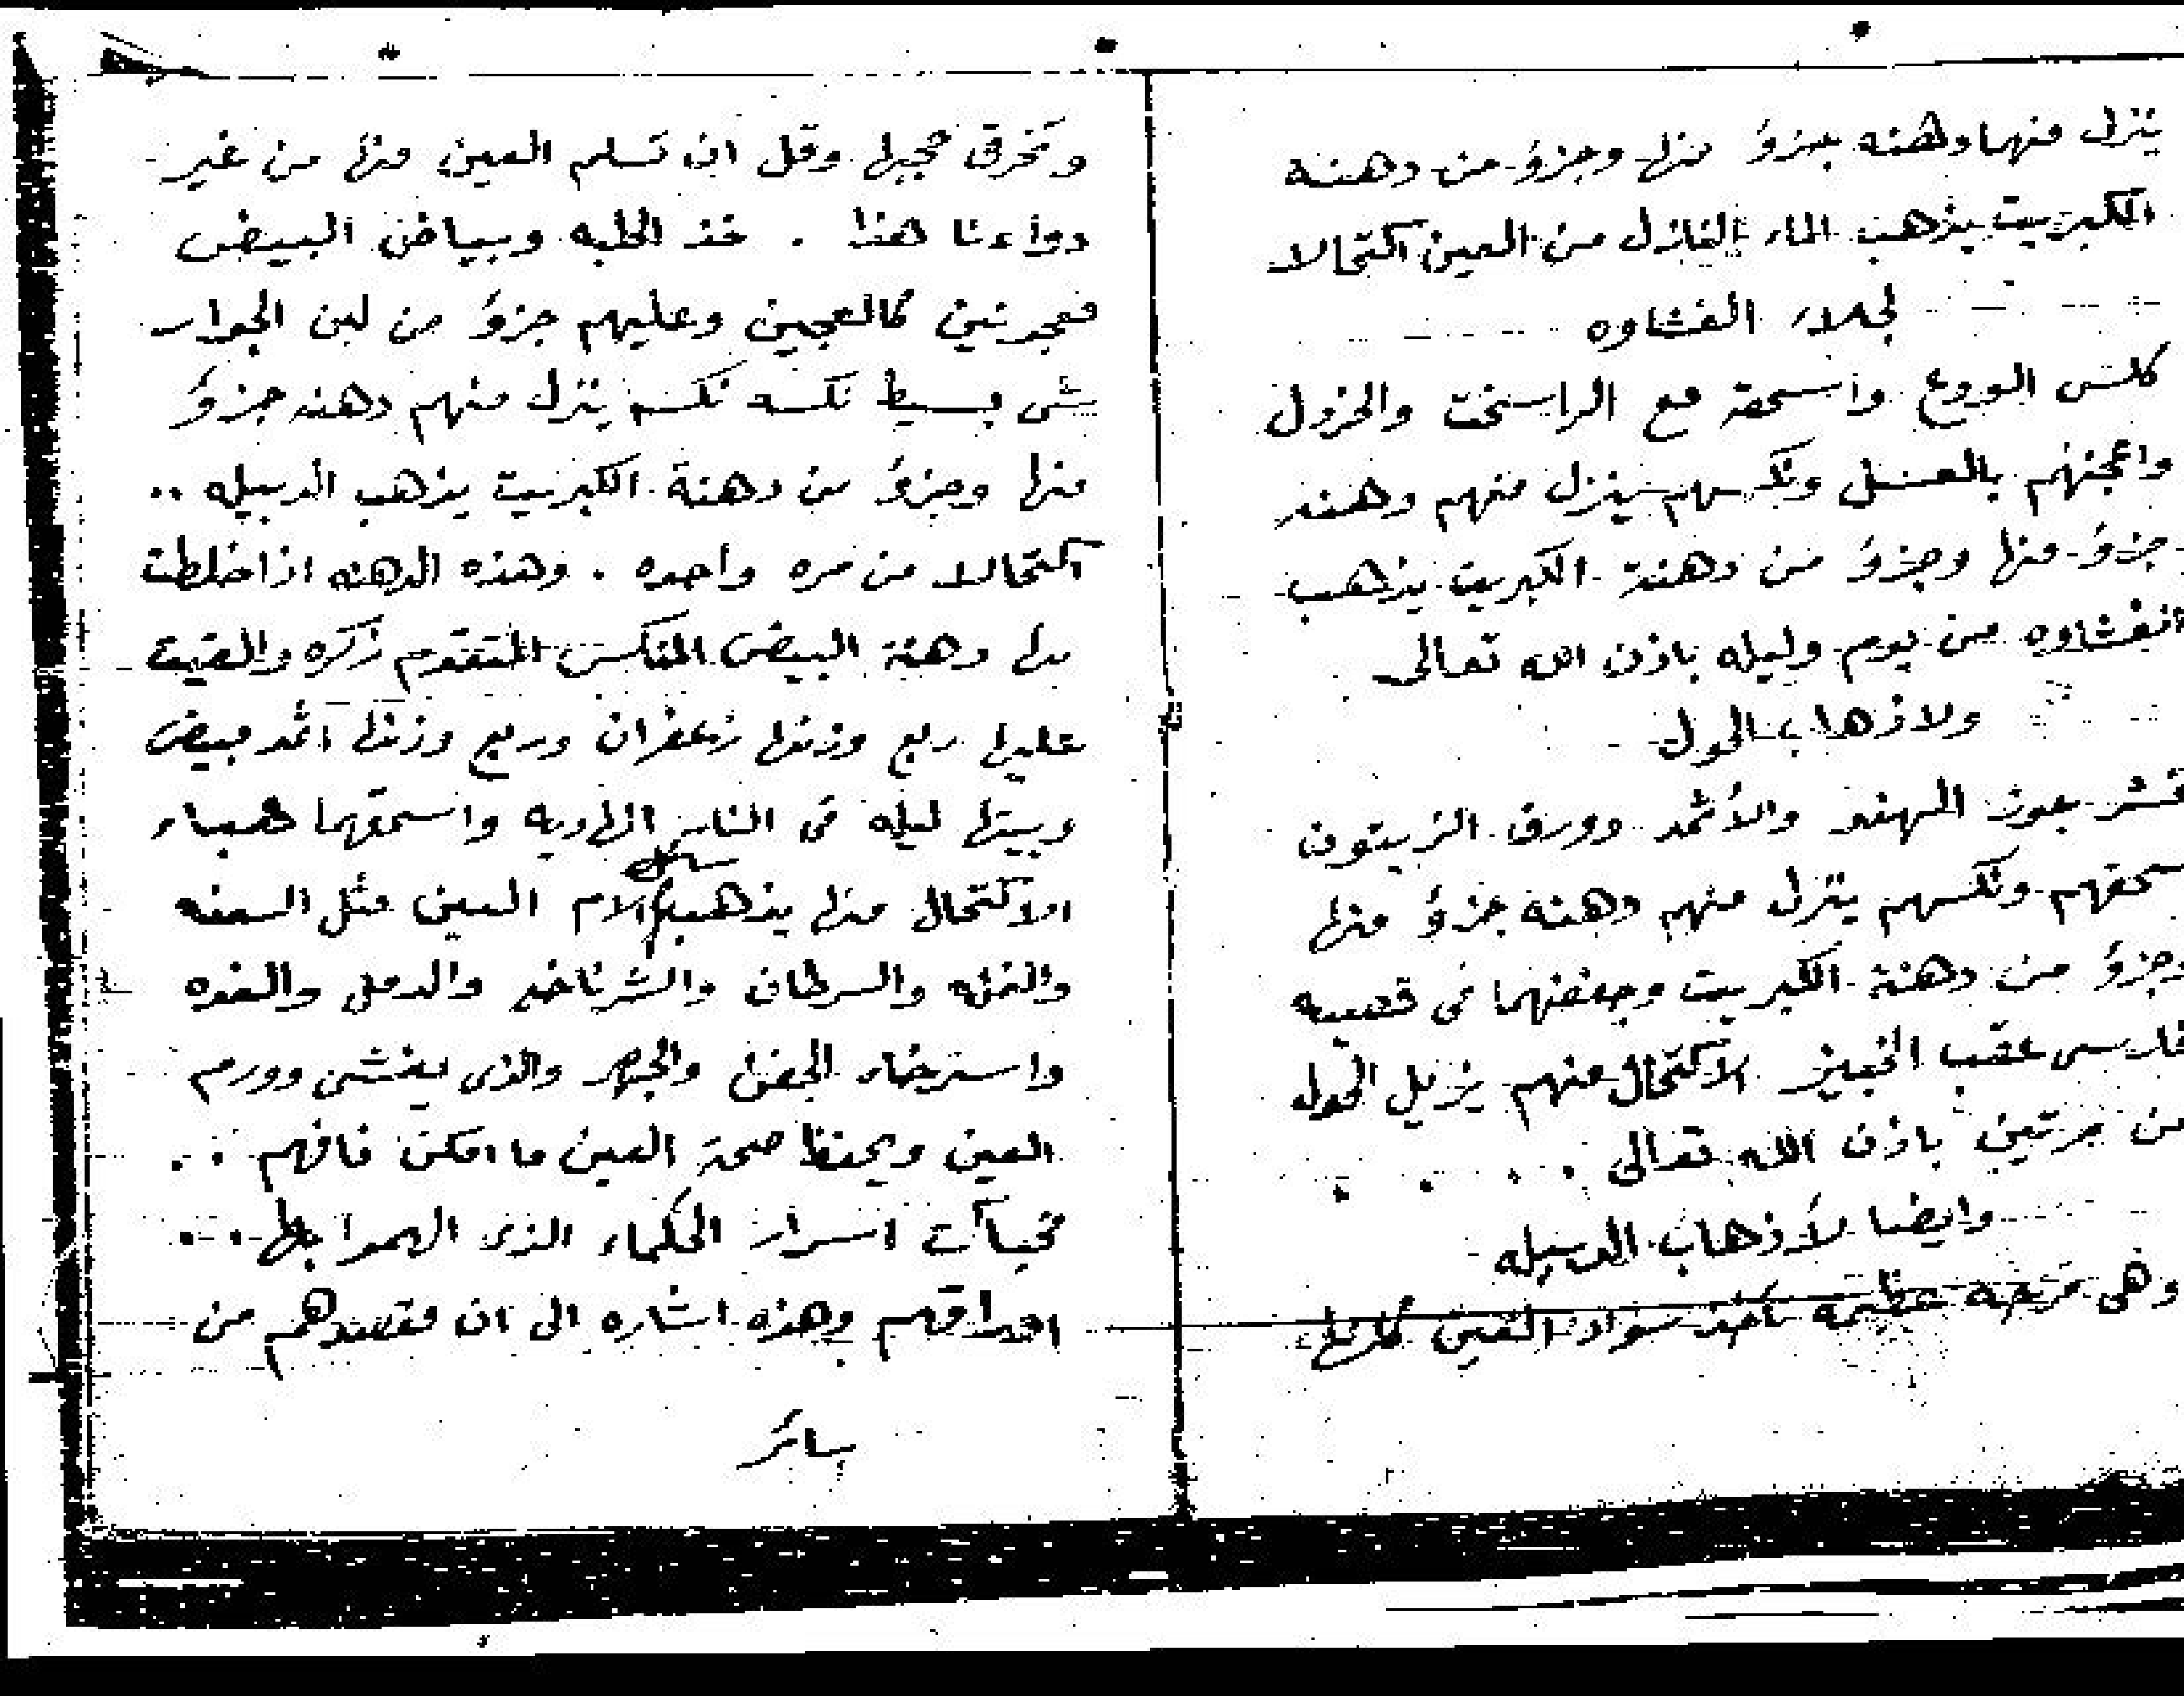 ينزل منهما دهنه جزؤ منها وجزؤ من دهنه
الكبريت يذهب الماء النازل من العين اكتحالا
لجلاء الغشاوه
كلس الودع واسحقه مع الراسخت والخزول
واعجنهم بالعسل ونكسهم ينزل منهم دهنه
جزؤ منها وجزؤ من دهنة الكبريت يذهب
الغشاوه من يوم وليله باذن الله تعالى
ولاذهاب الحول
قشر جوز الهند والأثمد وورق الزيتون
اسحقهم ونكسهم ينزل منهم دهنه جزؤ منها
وجزؤ من دهنة الكبريت وجففهما فى قصبه
فارسى عقب الخبيز الاكتحال منهم يزيل الحول
من مرتين باذن الله تعالى . . . .
وايضا لأذهاب الدبيله
وهى قرحه عظيمه تأخذ سواد العين كلها
وتخرق حجبها وقل ان تسلم العين منها من غير
دواءنا هذا . خذ الحلبه وبياض البيض
معجونين كالعجين وعليهم جزؤ من لبن الجوار
شى بسيط نكسه نكسه ينزل منهم دهنه جزؤ
منها وجزؤ من دهنة الكبريت يذهب الدبيله ..
اكتحالا من مره واحده . وهذه الدهنه اذا خلطت
بها دهنة البيض المنكس المتقدم ذكره والقيت
عليها ربع وزنها زعفران وربع وزنها اثمد مبيض
وبيتها ليله فى النار الهاديه واسحقهما هباء
الاكتحال منها يذهب سائر آلام العين مثل السعفه
والنمله والسرطان والشرناخ والدمل والغده
واسترخاء الجفن والجهر والذى يغشى وورم
العين ويحفظ صحة العين ما امكن فافهم . .
مخبآت اسرار الحكماء الذى الهموا بها . . .
احداقهم وهذه اشاره الى ان مقصدهم من
سائر